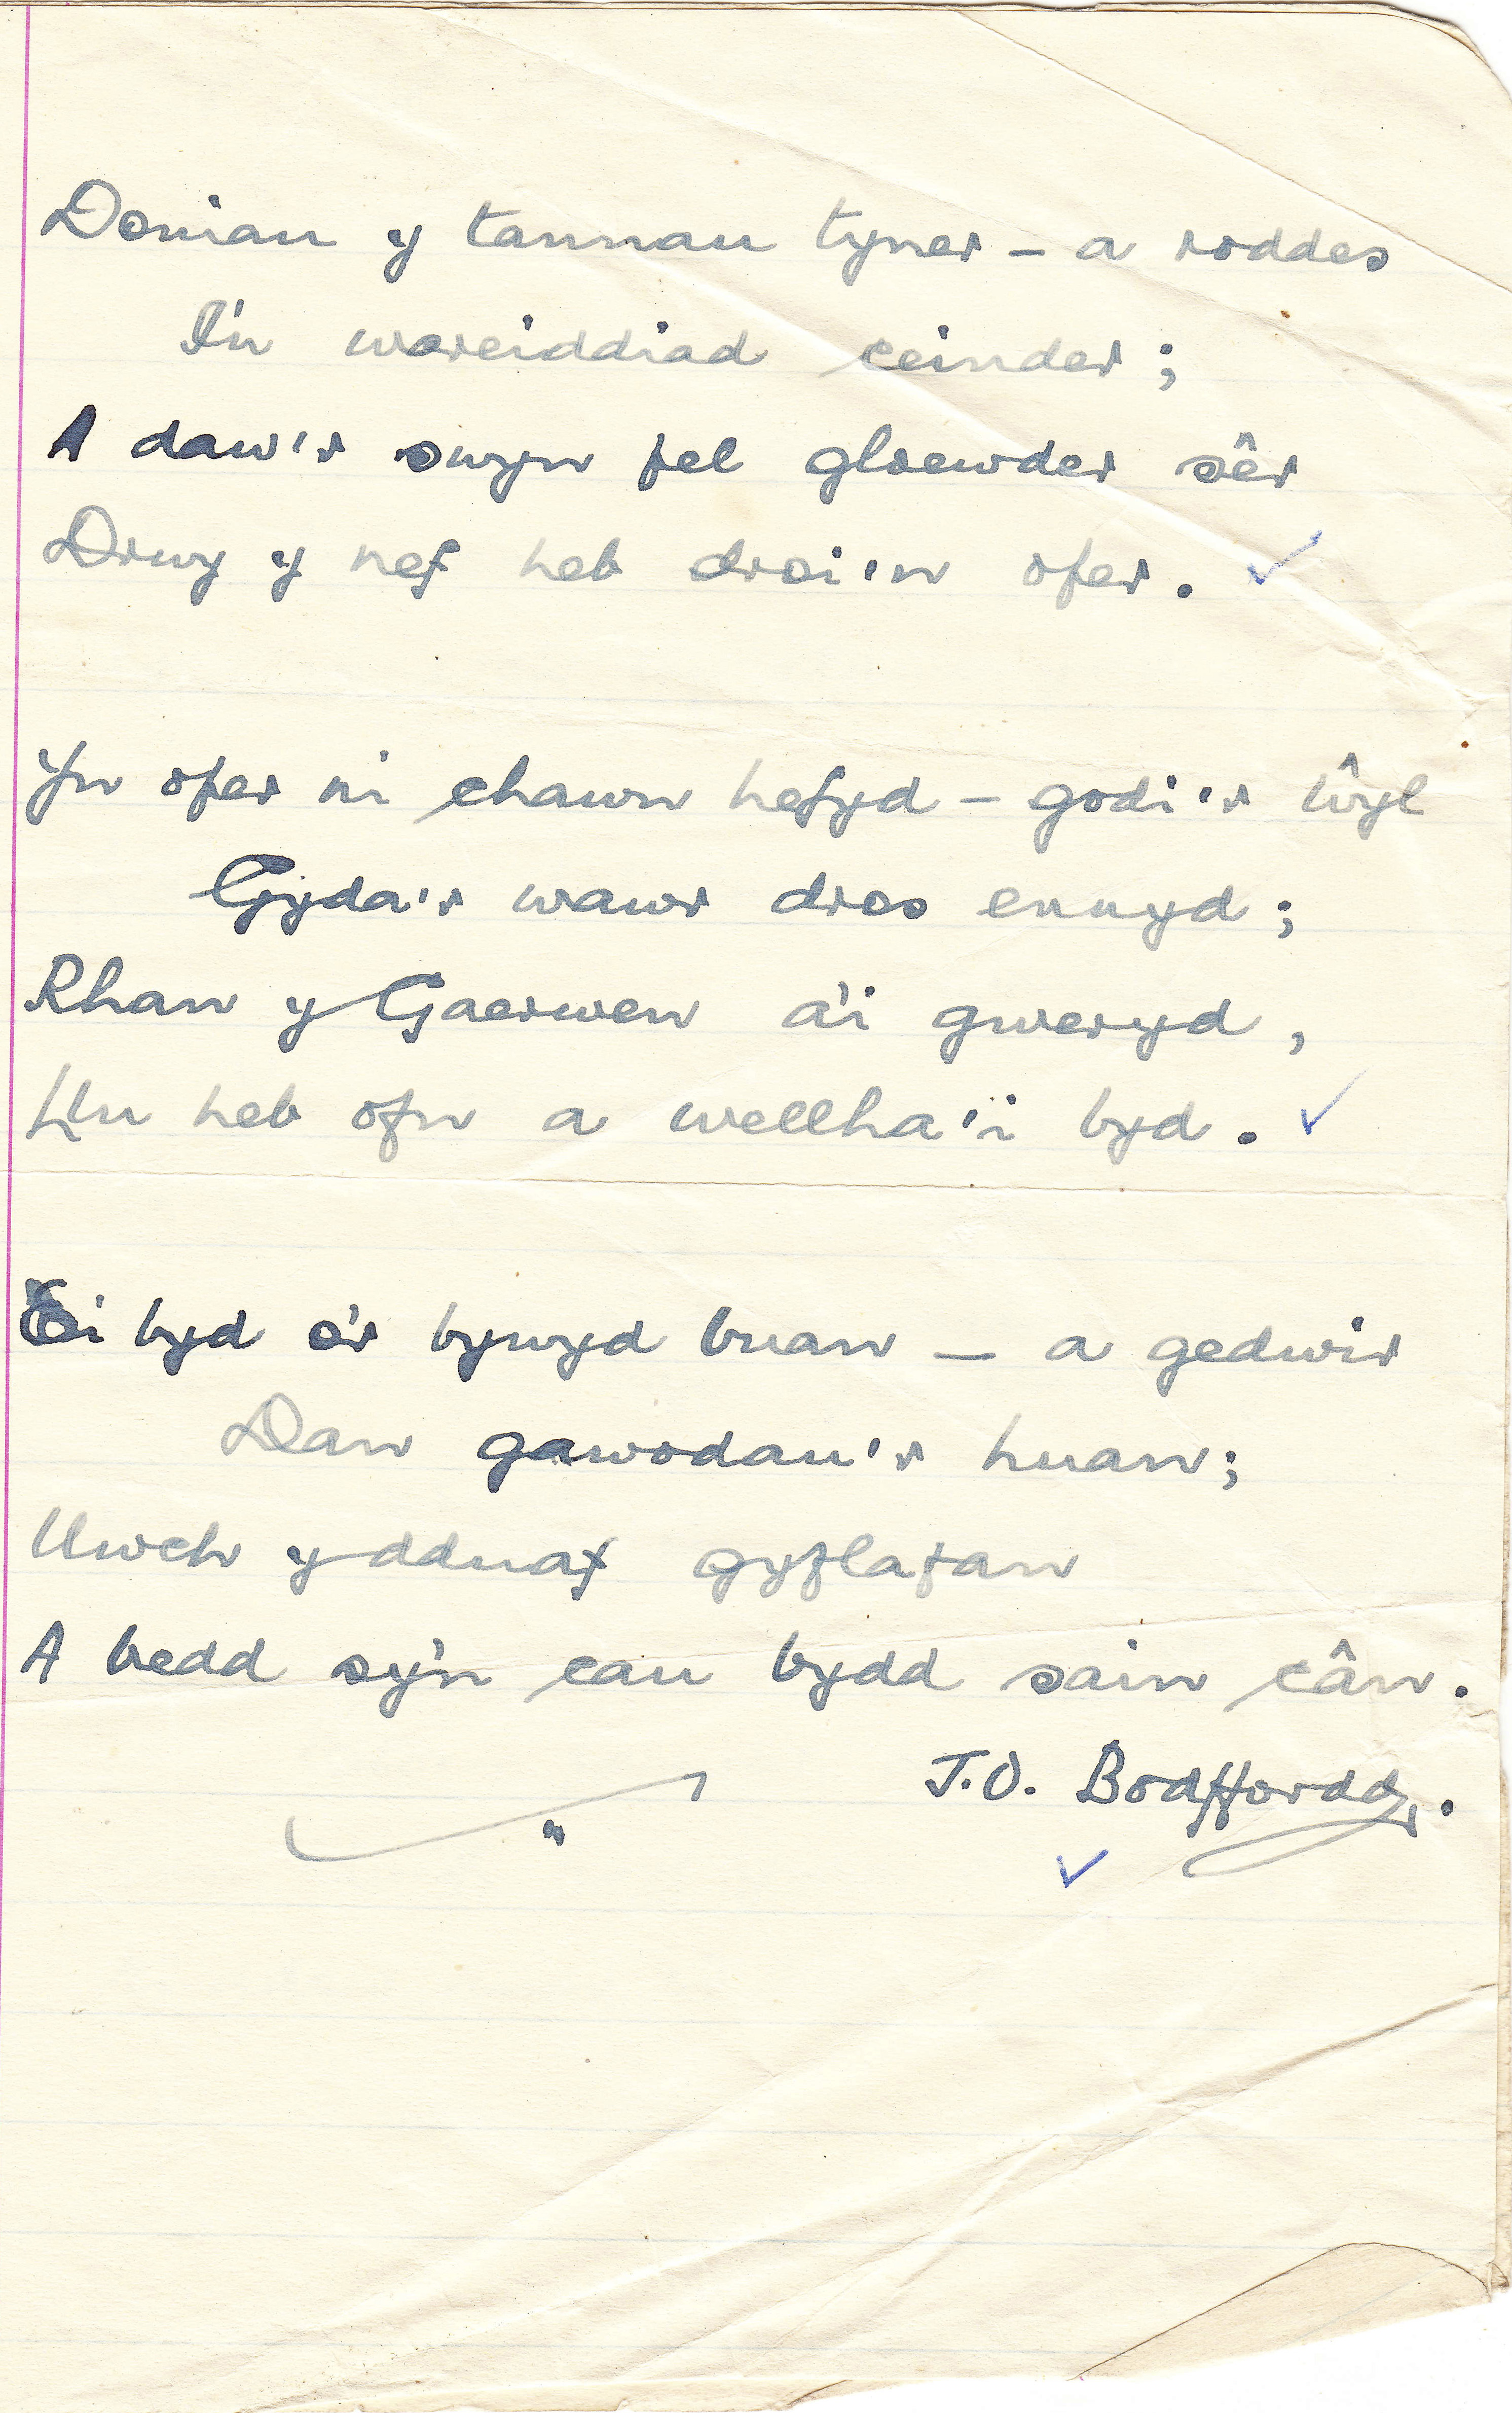 Doniau y tannau tyner – a roddes
I'n wareiddiad ceinder;
A daw'r swyn fel gloewder sêr
Drwy y nef heb droi'n ofer.
Yn ofer ni chawn hefyd – godi'r ŵyl
Gyda'r wawr dros ennyd;
Rhan y Gaerwen a'i gweryd,
Hin heb ofn a wellha'i byd.
Ei byd o'r bywyd buan – a gedwir
Dan gawodau'r huan;
Uwch y dduaf gyflafan
A bedd sy'n cau bydd sain cân.
J.O. Bodffordd.